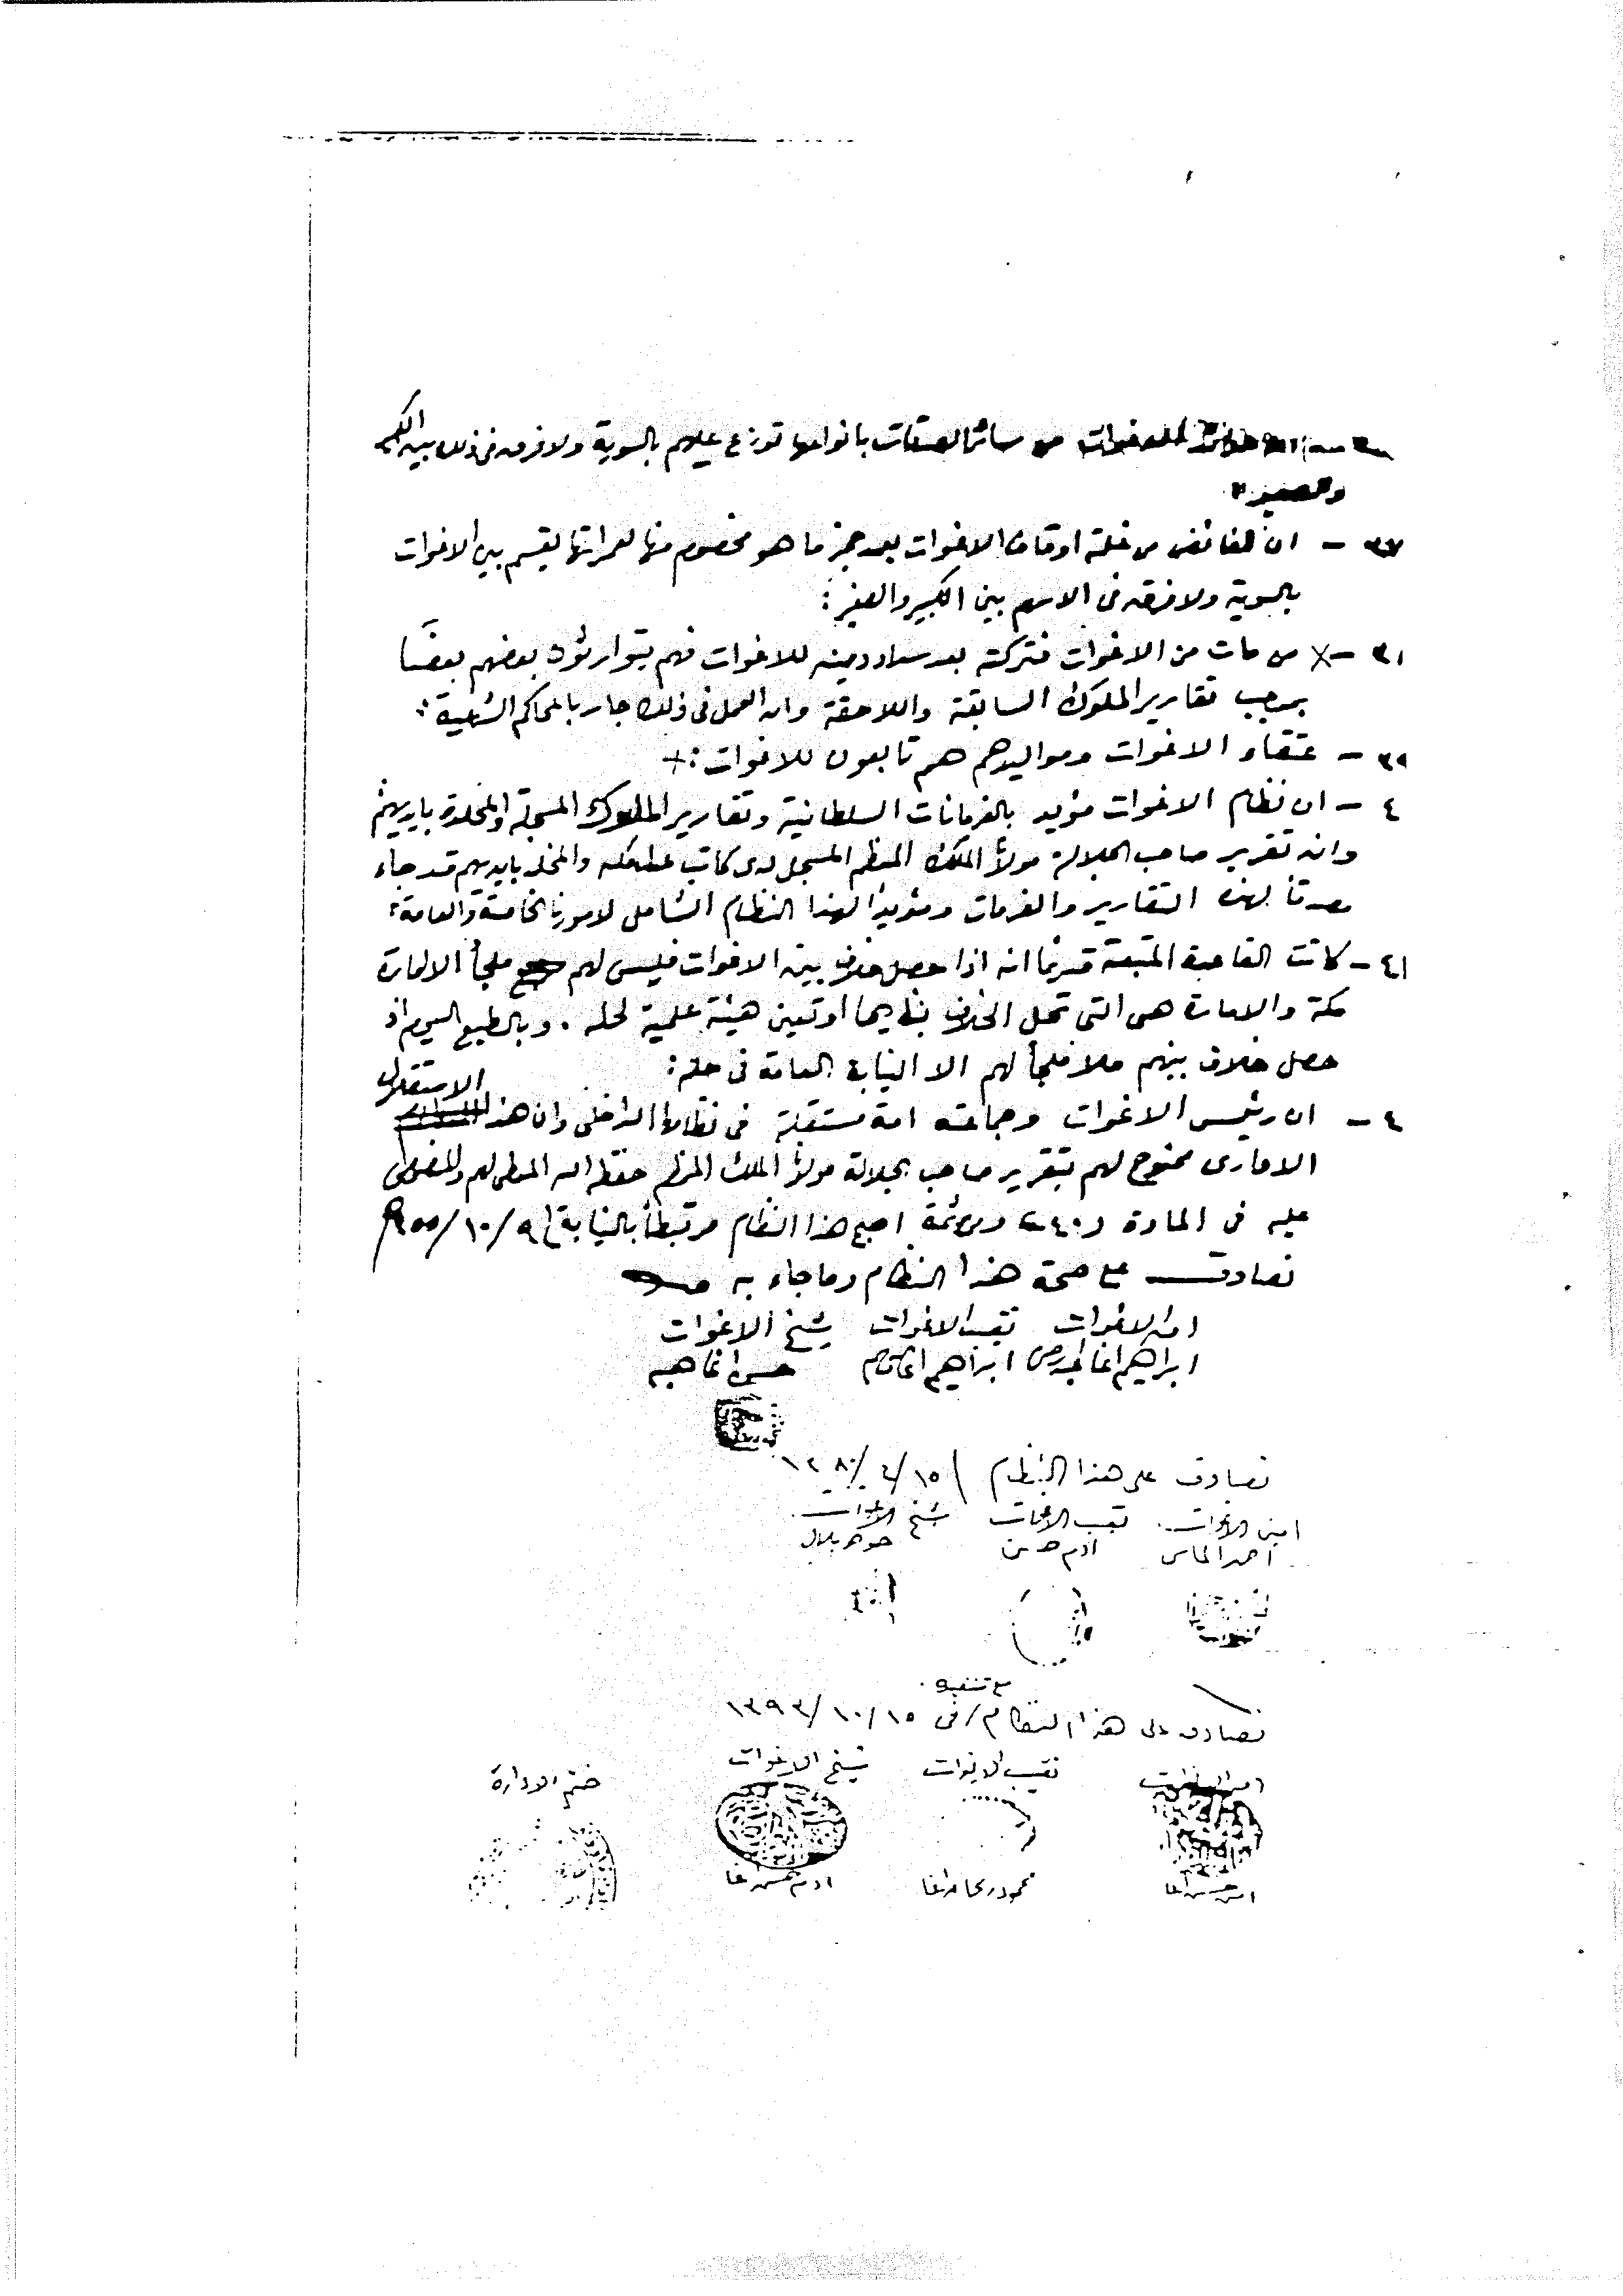 للاغوات من سائر الصدقات بانواعها توزع عليهم بالسوية ولا فرق في ذلك بين الكبير
والصغير
٣٧ - ان الفائض من غلة اوقاف الاغوات بعد حجز ما هو مخصوم منها لعمراتها يقسم بين الاغوات
بالسوية ولا فرق في الاسهم بين الكبير والصغير :
٣٨ - من مات من الاغوات فتركته بعد سداد دينه للاغوات فهم يتوارثون بعضهم بعضا
بموجب تقارير الملوك السابقة واللاحقة وان العمل في ذلك جار بالمحاكم الشرعية :
٣٩ - عتقاء الاغوات ومواليدهم هم تابعون للاغوات :
٤ - ان نظام الاغوات مؤيد بالفرمانات السلطانية وتقارير الملوك المسجلة والمخلدة بايديهم
وان تقرير صاحب الجلالة مولانا الملك المعظم المسجل لدى كاتب عدل مكة والمخلد بايديهم قد جاء
مصدقا لهذه التقارير والفرمات ومؤيدا لهذا النظام الشامل لامورنا الخاصة والعامة :
٤١ - كانت القاعدة المتبعة قديما انه اذا حصل خلاف بين الاغوات فليس لهم ملجأ الا امارة
مكة والامارة هى التى تحل الخلاف بنظرها او تعين هيئة علمية لحله . وبالطبع اليوم اذ
حصل خلاف بينهم فلا ملجأ لهم الا النيابة العامة في حله :
الاستقلال
٤ - ان رئيس الاغوات وجماعته امة مستقلة في نظامها الداخلى وان هذا
الادارى ممنوح لهم بتقرير صاحب الجلالة مولانا الملك المعظم حفظه الله المعطى لهم والمنصوص
عليه في المادة ٤٠ ومن ثمة اصبح هذا النظام مرتبطا بالنيابة ٩/١٠/٥٥
نصادق على صحة هذا النظام وما جاء به
امين الاغوات نقيب الاغوات شيخ الاغوات
ابراهيم اغا ابراهيم اغا حسن اغا
نصادق على هذا النظام ١٥/٤/١٣٨٠
امين الاغوات نقيب الاغوات شيخ الاغوات
احمد الماس ادم حسن جوهر بلال
مع تنفيذه
نصادق على هذا النظام / في ١٥/١٠/١٣٩٣
امين الاغوات نقيب الاغوات شيخ الاغوات ختم الادارة
حسن اغا محمود اغا ادم حسن اغا